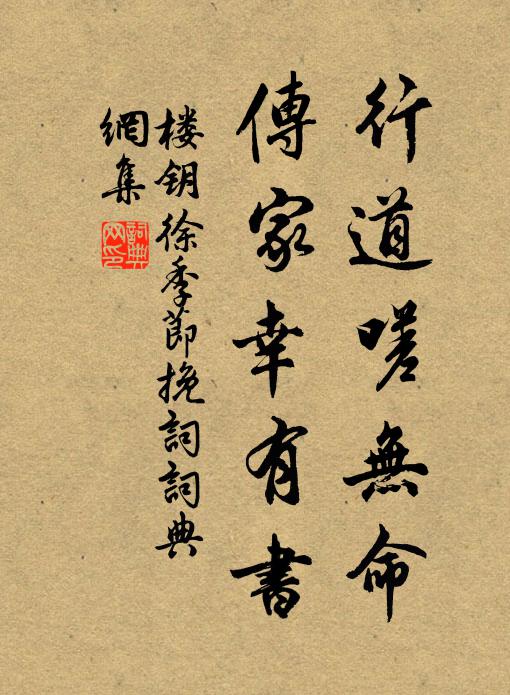 行道嗟無命
傳家幸有書
楼钥徐季節挽詞詞典
網集
詞典網印